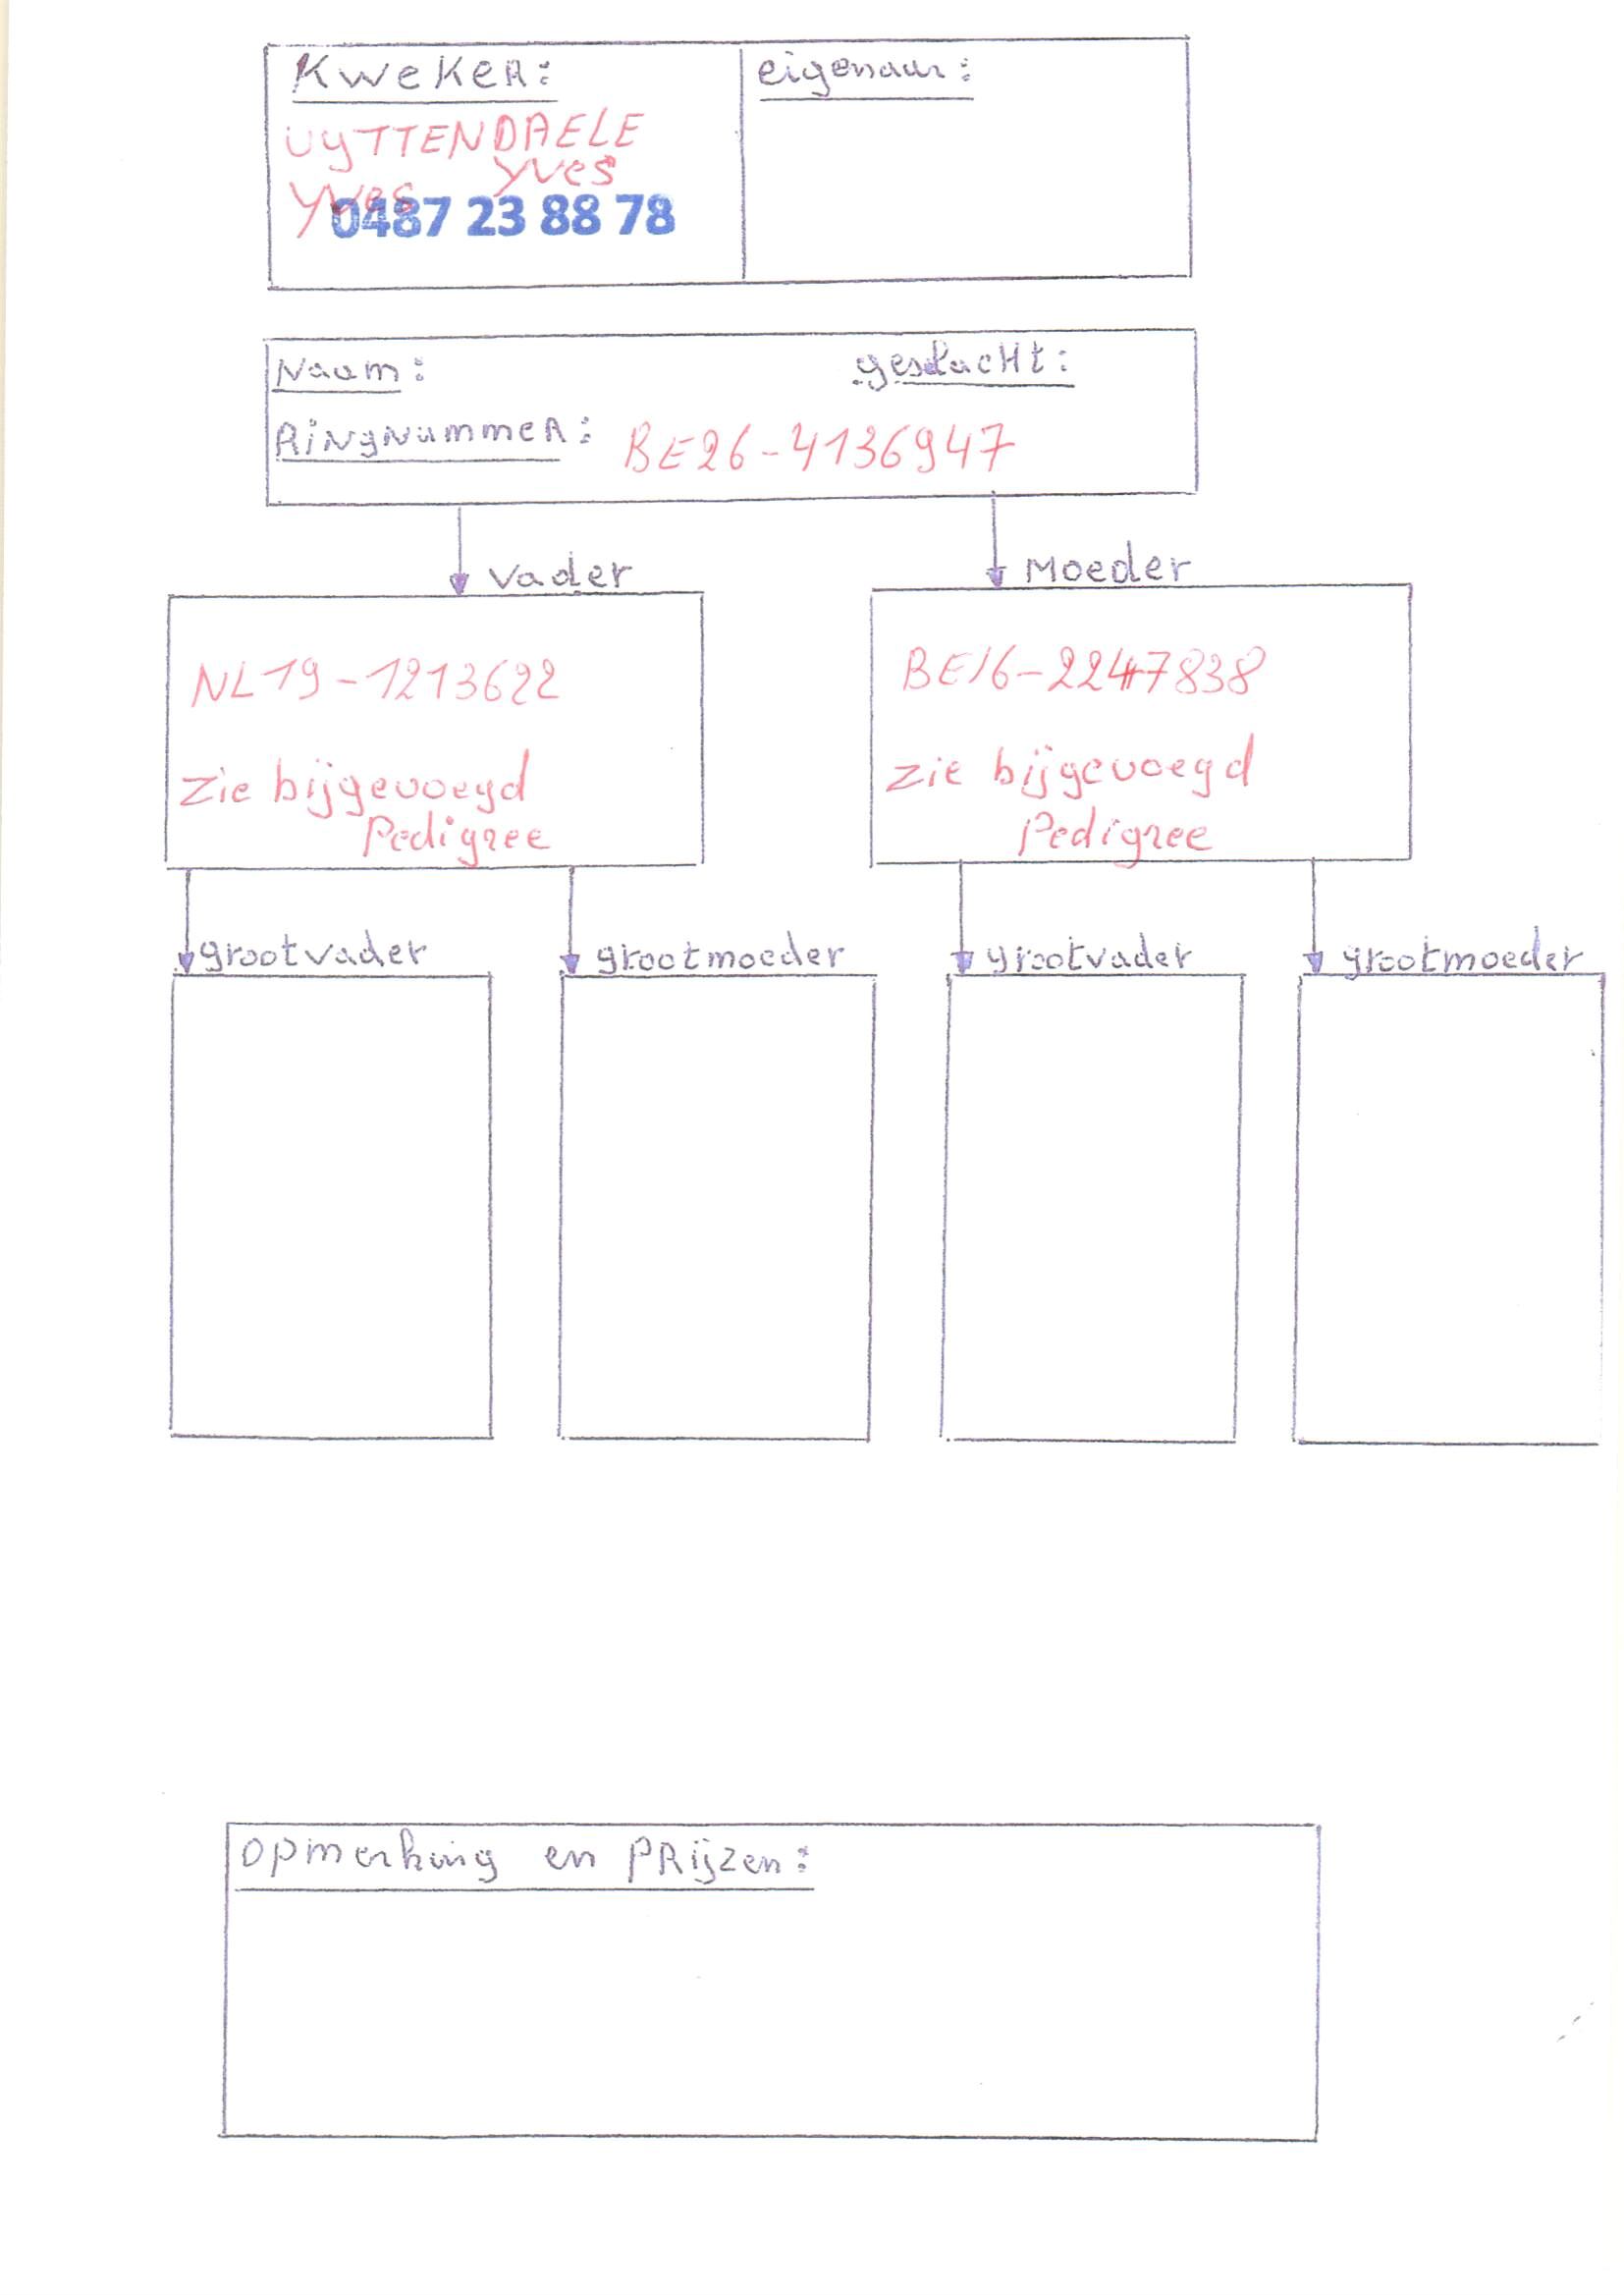 KWeKeR:
eigenaar:
UYTTENDAELE
Yves
Yves
0487 23 88 78
Naam:
geslacht:
RiNgNummeR:
BE26-4136947
Vader
Moeder
NL19-1213622
BE16-2247838
Zie bijgevoegd
Pedigree
Zie bijgevoegd
Pedigree
grootvader
grootmoeder
grootvader
grootmoeder
opmerking en PRijzen: